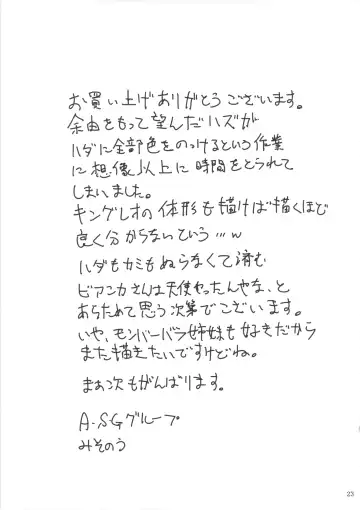 お買い上げありがとうございます。
余白をもって望んだハズが
ハダに全部色をのっけるという作業
に想像以上に時間をとられて
しまいました。
キングレオの体形も描けば描くほど
良く分からないという…w
ハダもカミもぬらなくて済む
ビアンカさんは天使やったんやな、と
あらためて思う次第でございます。
いや、モンバーバラ姉妹も好きだから
また描きたいですけどね。
まぁ次もがんばります。
A-SGグループ
みそのう
23